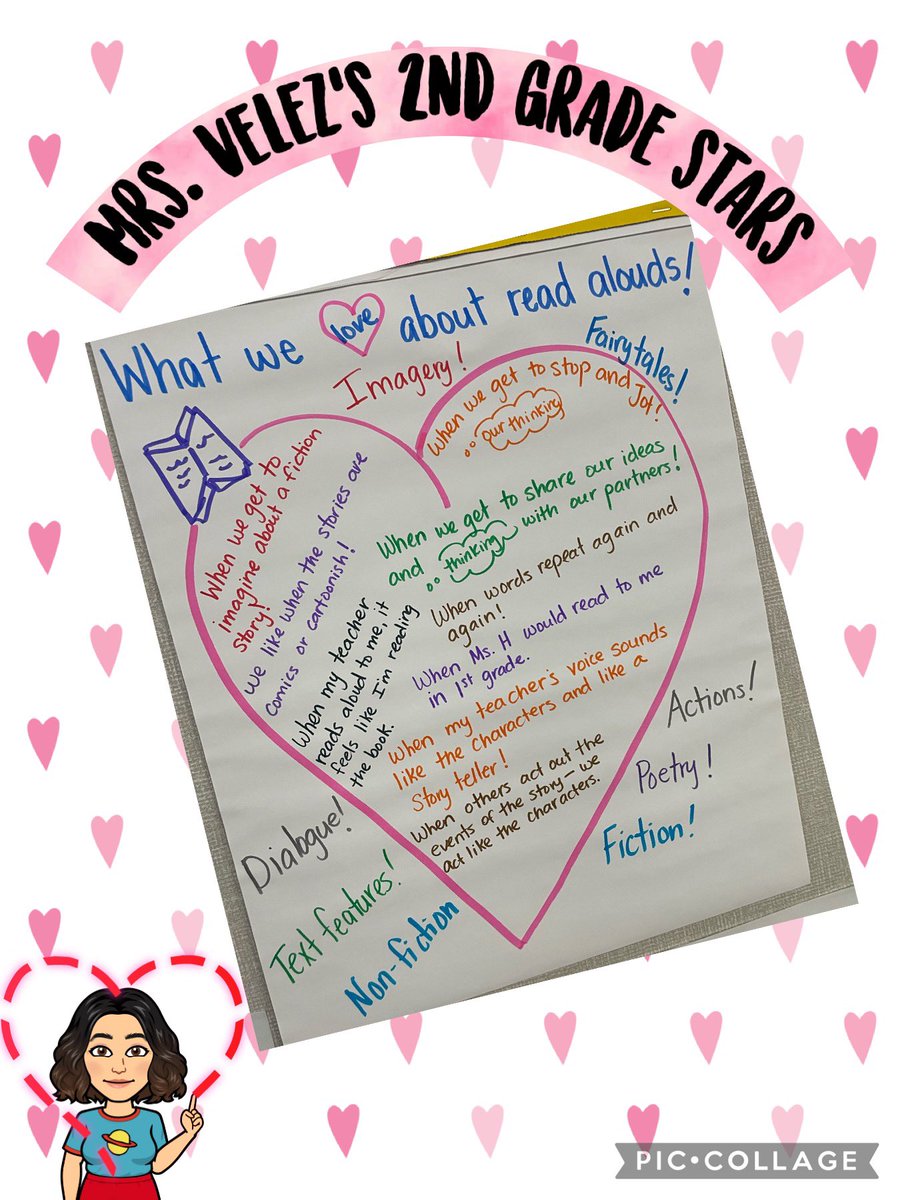 MRS. VELEZ'S 2ND GRADE STARS
What we love about read alouds!
Imagery!
Fairytales!
When we get to
imagine about a fiction
story!
We like when the stories are
comics or cartoonish!
When my teacher
reads aloud to me, it
feels like I'm reading
the book.
When we get to stop and Jot!
our thinking
When we get to share our ideas
and thinking with our partners!
When words repeat again and
again!
When Ms. H would read to me
in 1st grade.
When my teacher's voice sounds
like the characters and like a
Story teller!
When others act out the
events of the story - we
act like the characters.
Actions!
Poetry!
Fiction!
Dialogue!
Text features!
Non-fiction
PIC•COLLAGE